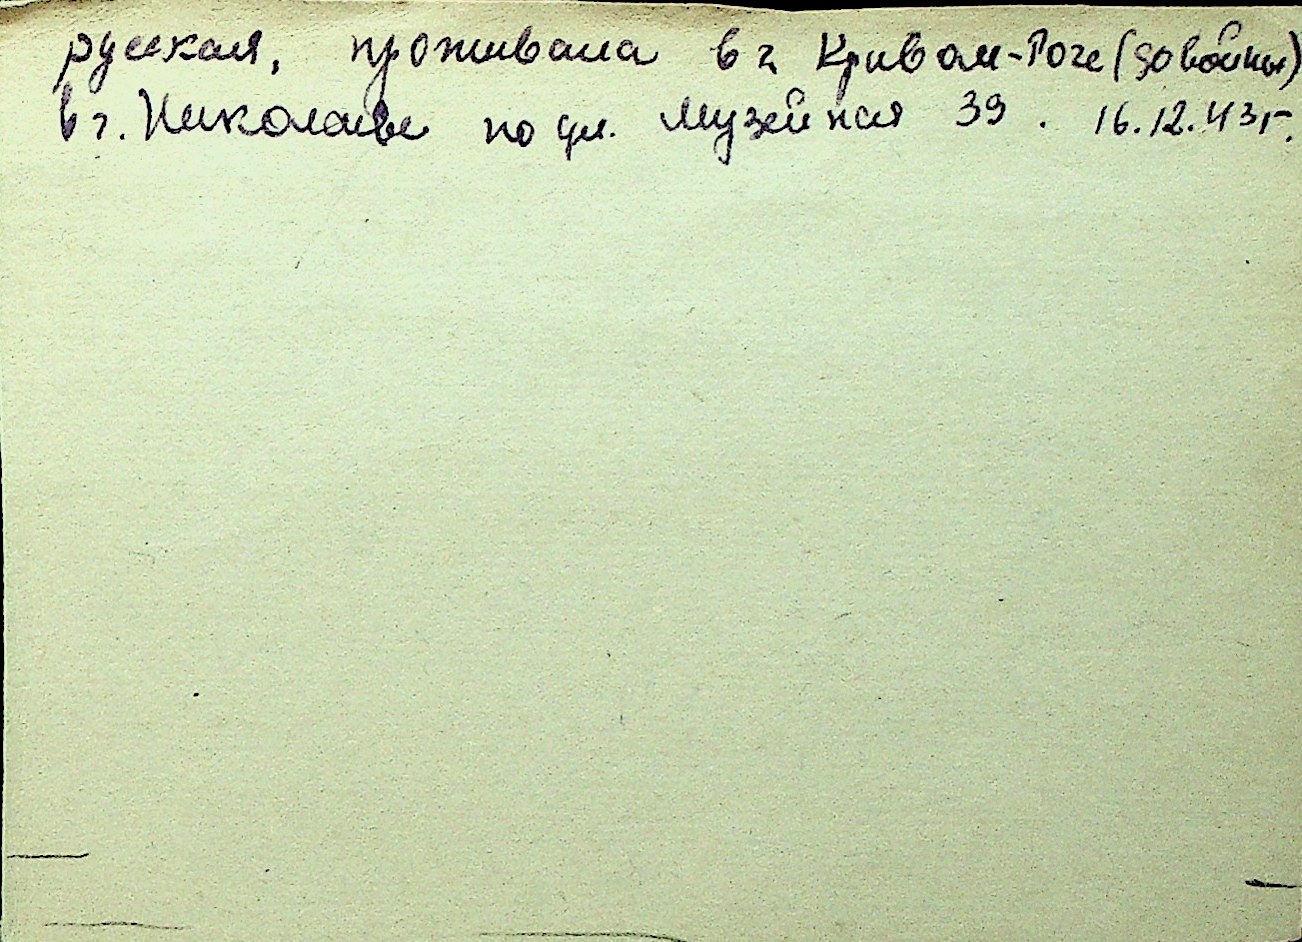 русская, проживала в г. Кривом-Роге (до войны)
в г. Николаеве по ул. Музейная 39. 16.12.43г.